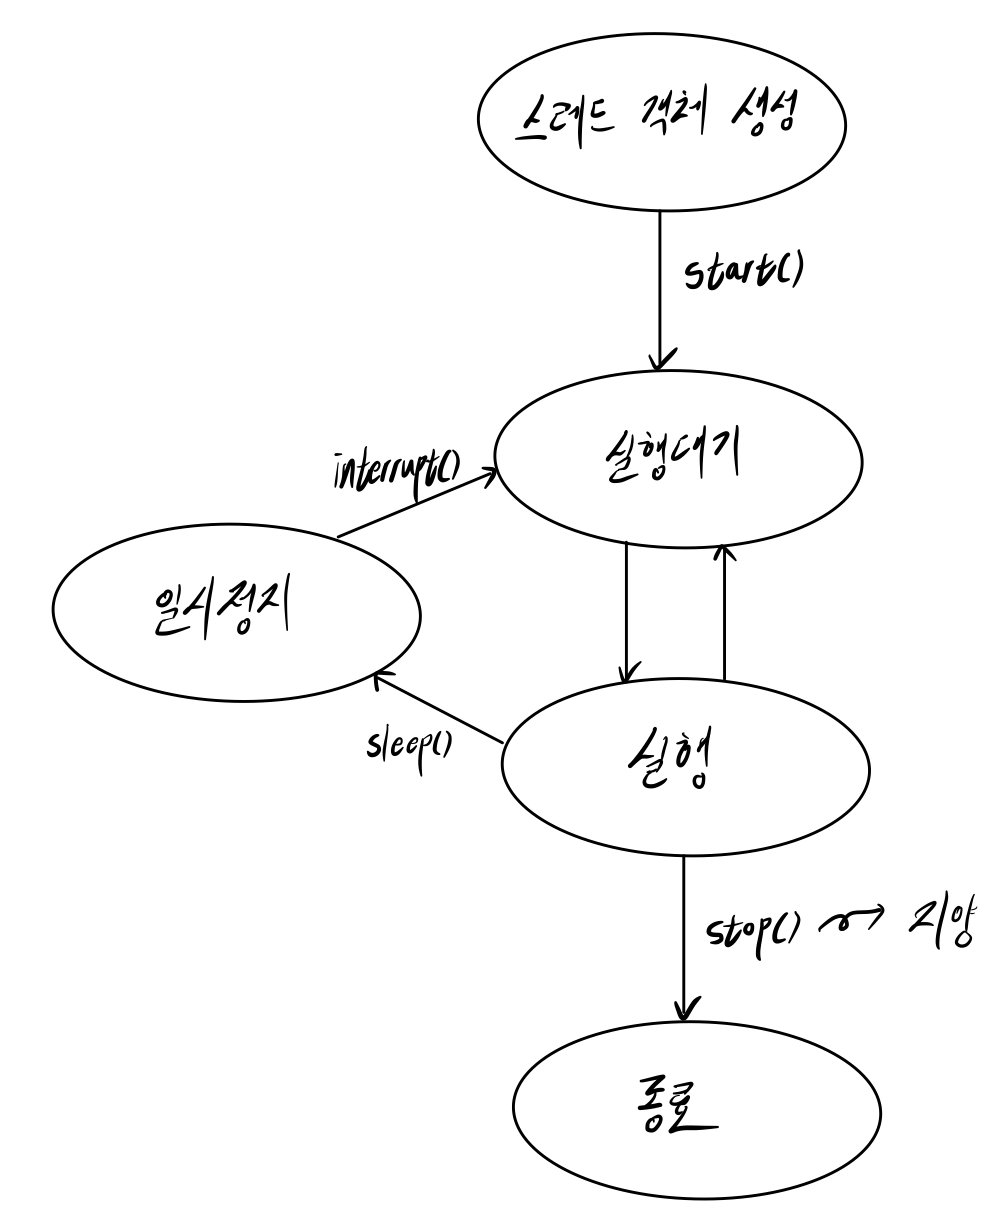 스레드 객체 생성
start()
실행대기
interrupt()
일시정지
sleep()
실행
stop() ~> 지양
종료